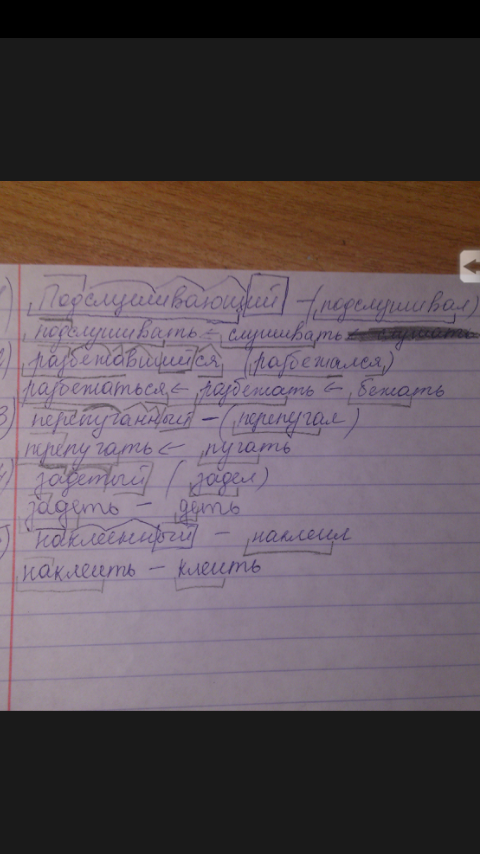 1) Подслушивающий - (подслушивал)
подслушивать ← слушивать ←
2) разбежавшийся (разбежался)
разбежаться ← разбежать ← бежать
3) перепуганный - (перепугал)
перепугать ← пугать
4) задетый (задел)
задеть - деть
5) наклеенный - наклеил
наклеить - клеить